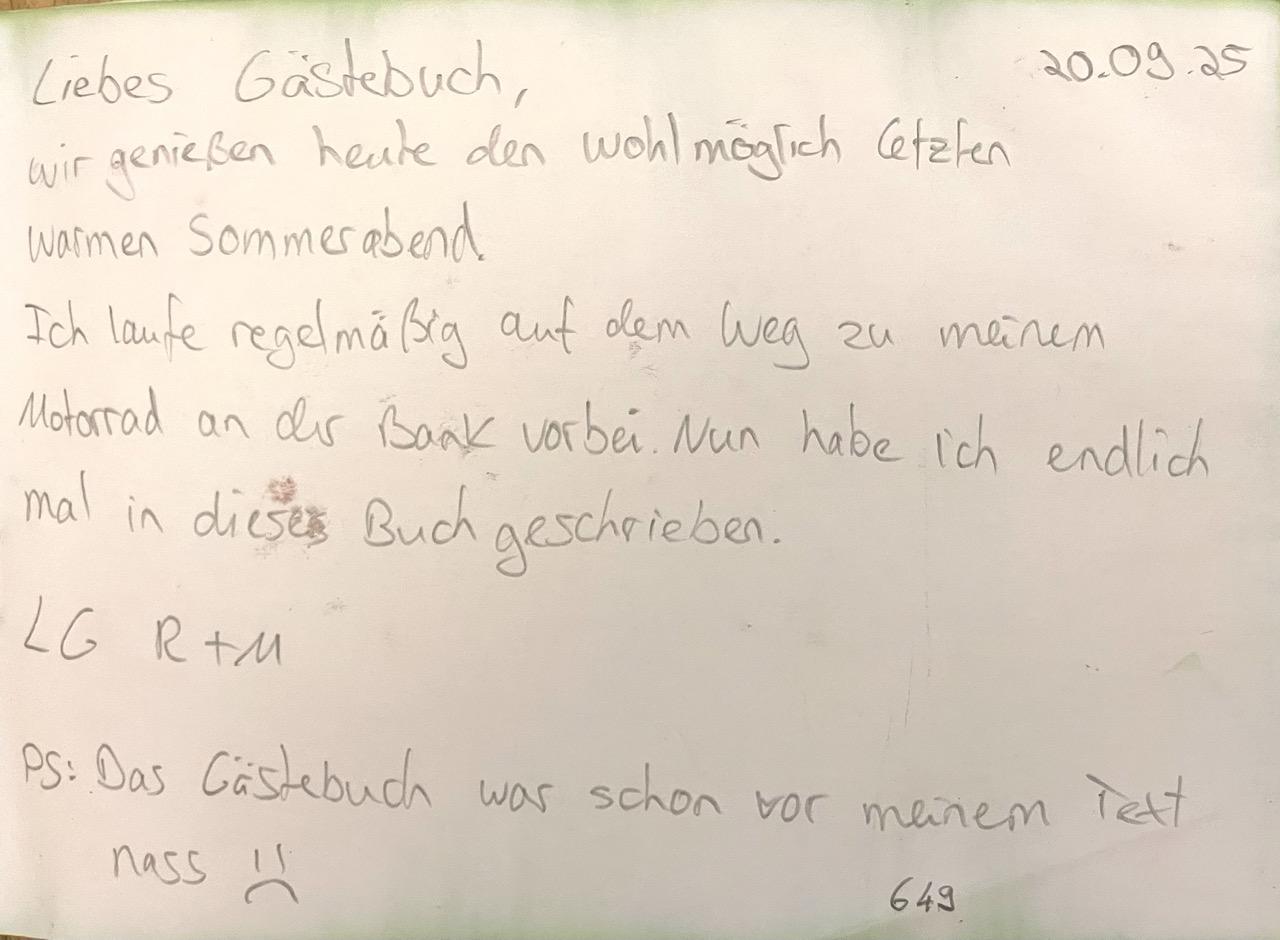 20.09.25
Liebes Gästebuch,
wir genießen heute den wohlmöglich letzten
warmen Sommerabend.
Ich laufe regelmäßig auf dem Weg zu meinem
Motorrad an der Bank vorbei. Nun habe ich endlich
mal in dieses Buch geschrieben.
LG R+M
PS: Das Gästebuch war schon vor meinem Text
nass :(
649